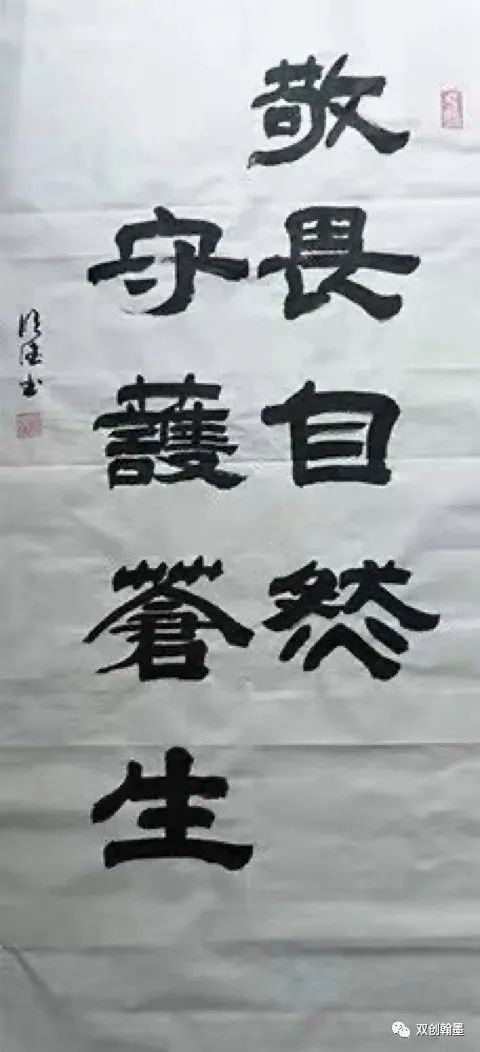 敬畏自然
守護蒼生
双创翰墨